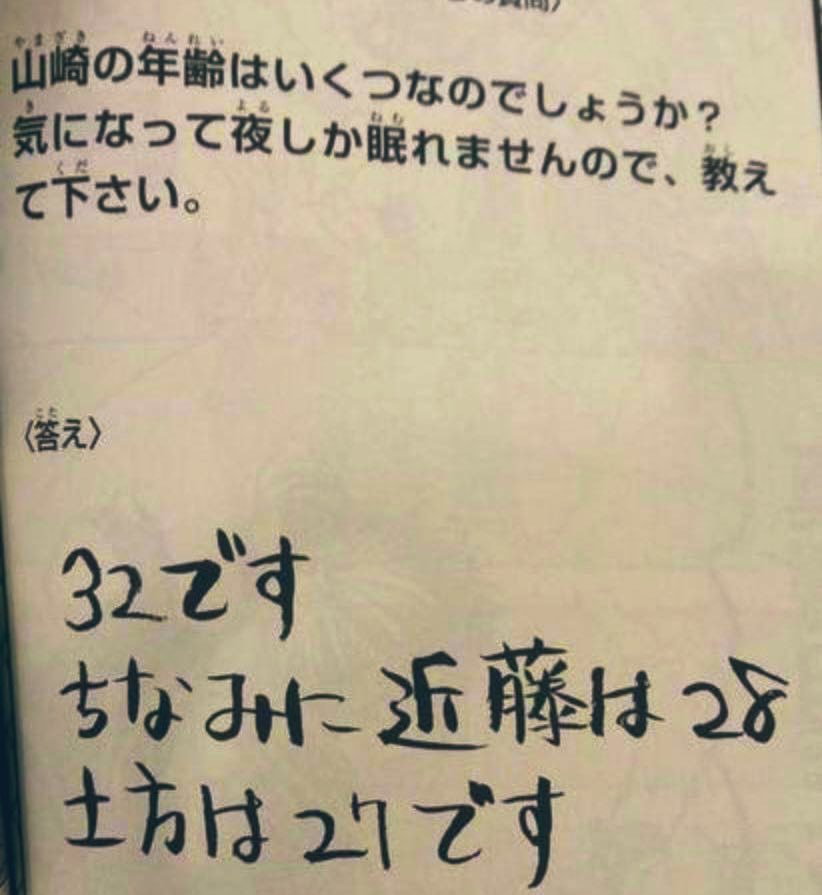 山崎の年齢はいくつなのでしょうか？
気になって夜しか眠れませんので、教え
て下さい。
〈答え〉
32です
ちなみに近藤は28
土方は27です